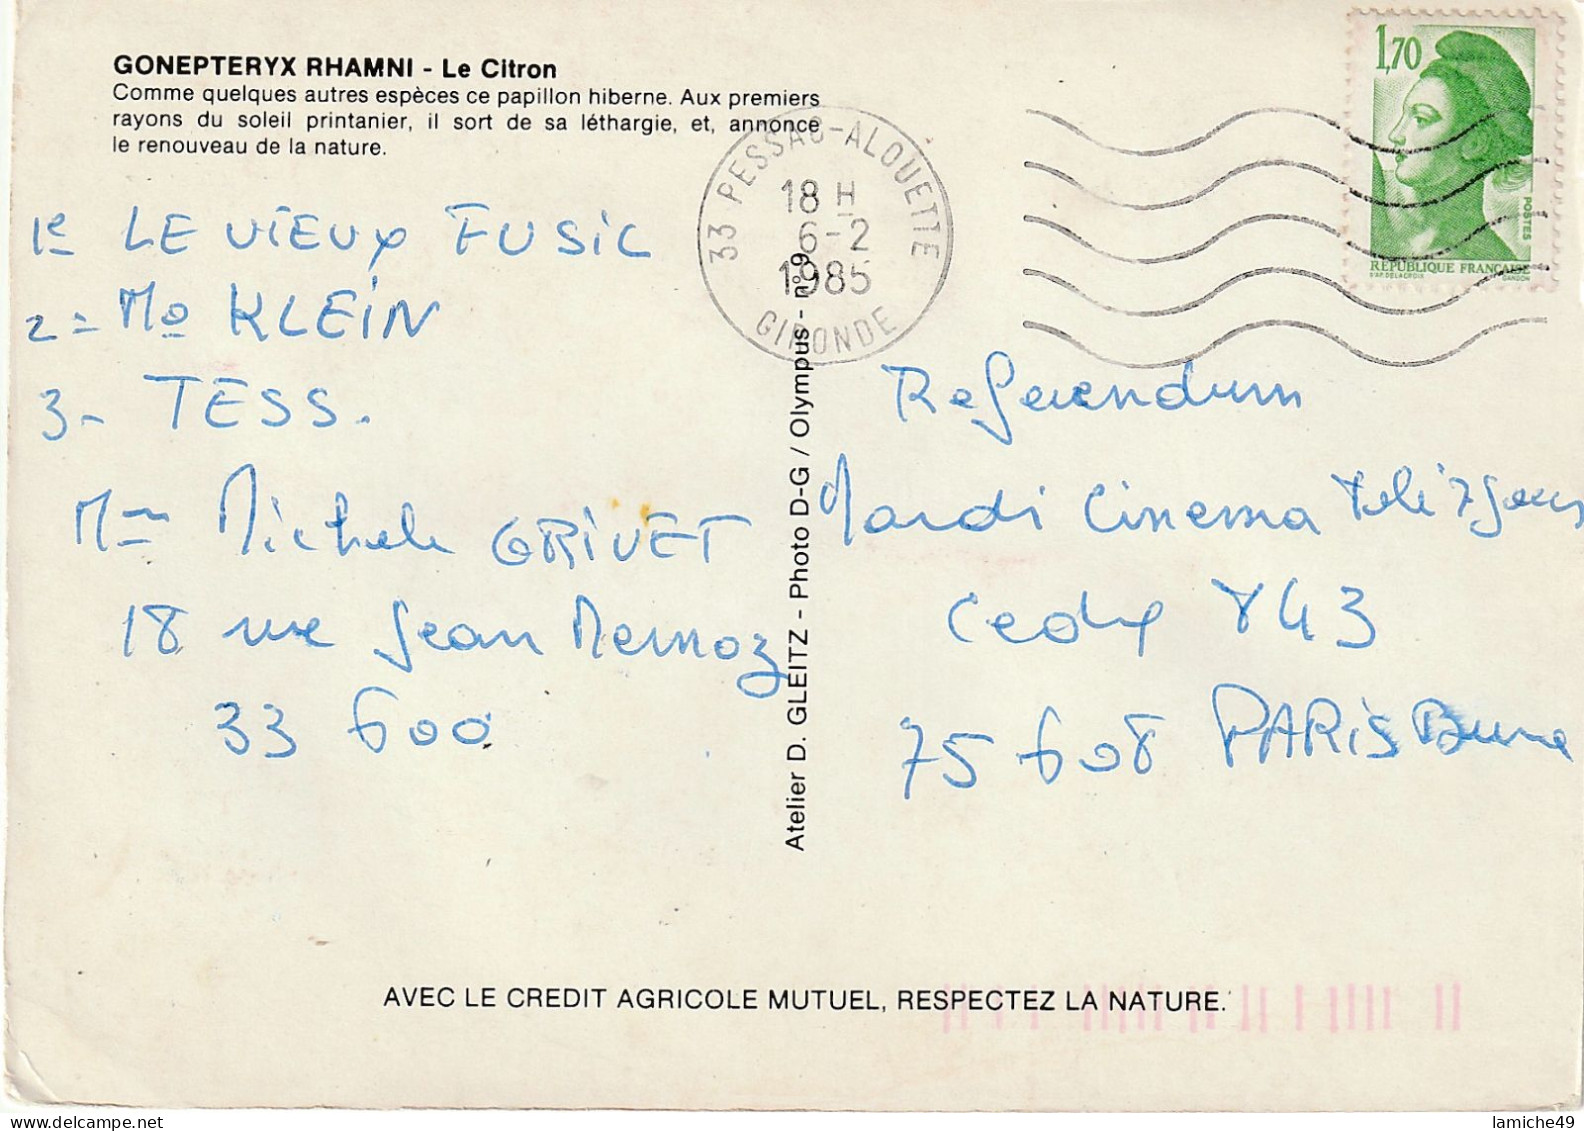 GONEPTERYX RHAMNI - Le Citron
Comme quelques autres espèces ce papillon hiberne. Aux premiers
rayons du soleil printanier, il sort de sa léthargie, et, annonce
le renouveau de la nature.
1e LE VIEUX FUSIL
2= Mo KLEIN
3- TESS.
Mme Michele GRIVET
18 rue Jean Mermoz
33 600
33 PESSAC-ALOUETTE
18 H
6-2
1985
GIRONDE
1,70
POSTES
RÉPUBLIQUE FRANÇAISE
D'AP. DELACROIX GANDON
Atelier D. GLEITZ - Photo D-G / Olympus - n° 9
Referendum
Mardi Cinema Tele 7 Jours
Cedex 843
75 608 PARIS Brune
AVEC LE CREDIT AGRICOLE MUTUEL, RESPECTEZ LA NATURE.
lamiche49